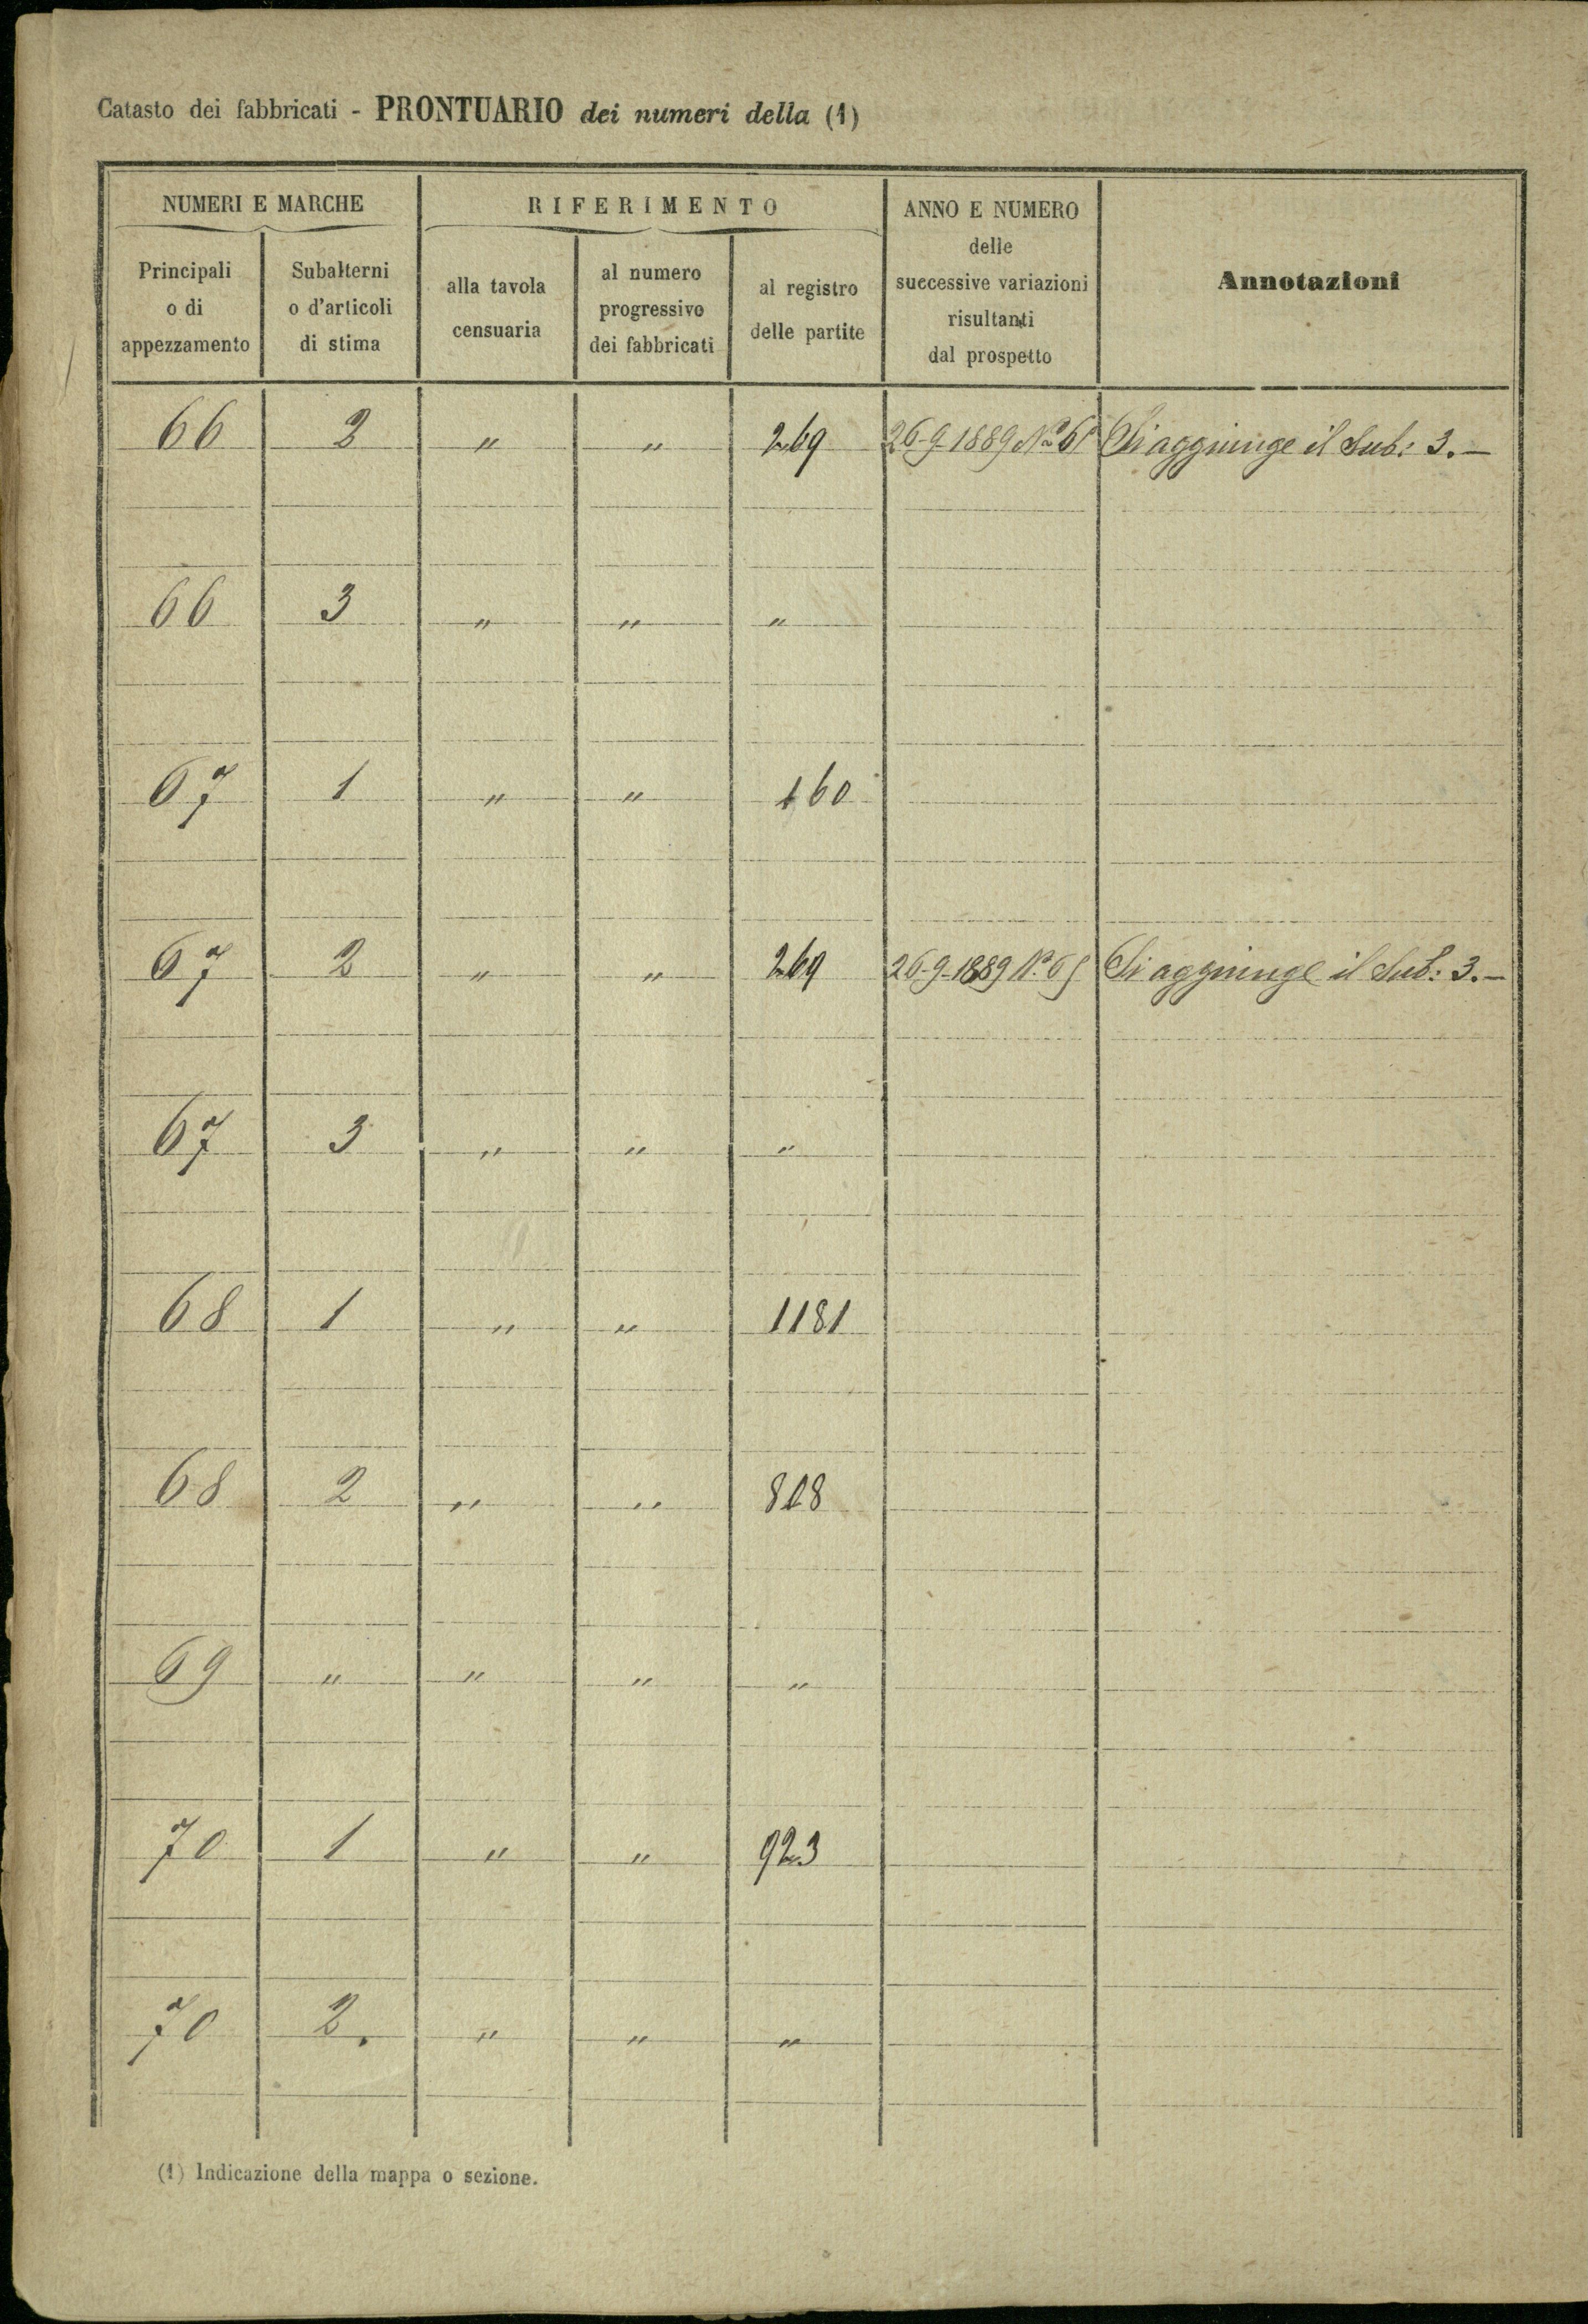 Catasto dei fabbricati - PRONTUARIO dei numeri della (1)
NUMERI E MARCHE
RIFERIMENTO
ANNO E NUMERO delle successive variazioni risultanti dal prospetto
Annotazioni
Principali o di appezzamento
Subalterni o d'articoli di stima
alla tavola censuaria
al numero progressivo dei fabbricati
al registro delle partite
66 2 " " 269 26-9-1889 Nº Si aggiunge il Sub: 3.—
66 3 " " "
67 1 " " 160
67 2 " " 269 26-9-1889 Nº Si aggiunge il Sub: 3.—
67 3 " " "
68 1 " " 1181
68 2 " " 818
69 " " " "
70 1 " " 923
70 2. " " "
(1) Indicazione della mappa o sezione.